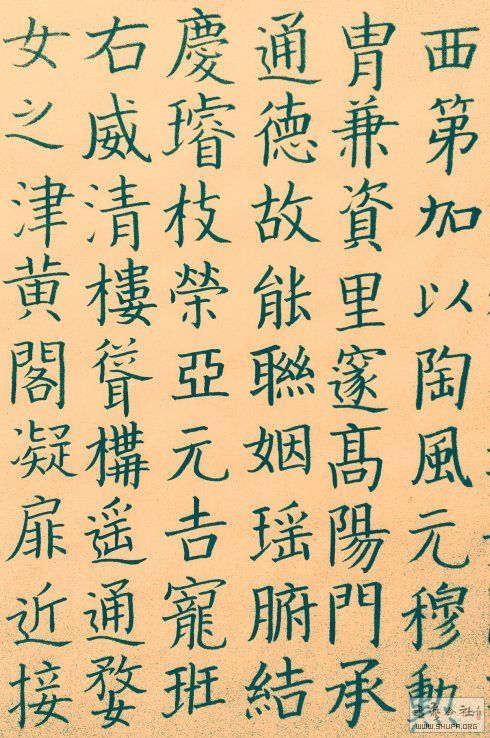 西第加以陶風元穆動
冑兼資里邃高陽門承
通德故能聯姻瑶腑結
慶璿枝榮亞元吉寵班
右威清樓聳構遥通婺
女之津黄閣凝扉近接
WWW.SHUFA.ORG